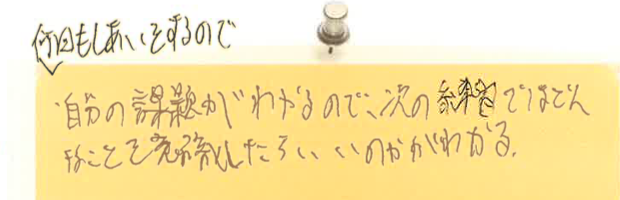 何回もしあいをするので
自分の課題がわかるので、次の練習ではどん
なことを意識したらいいのかがわかる。